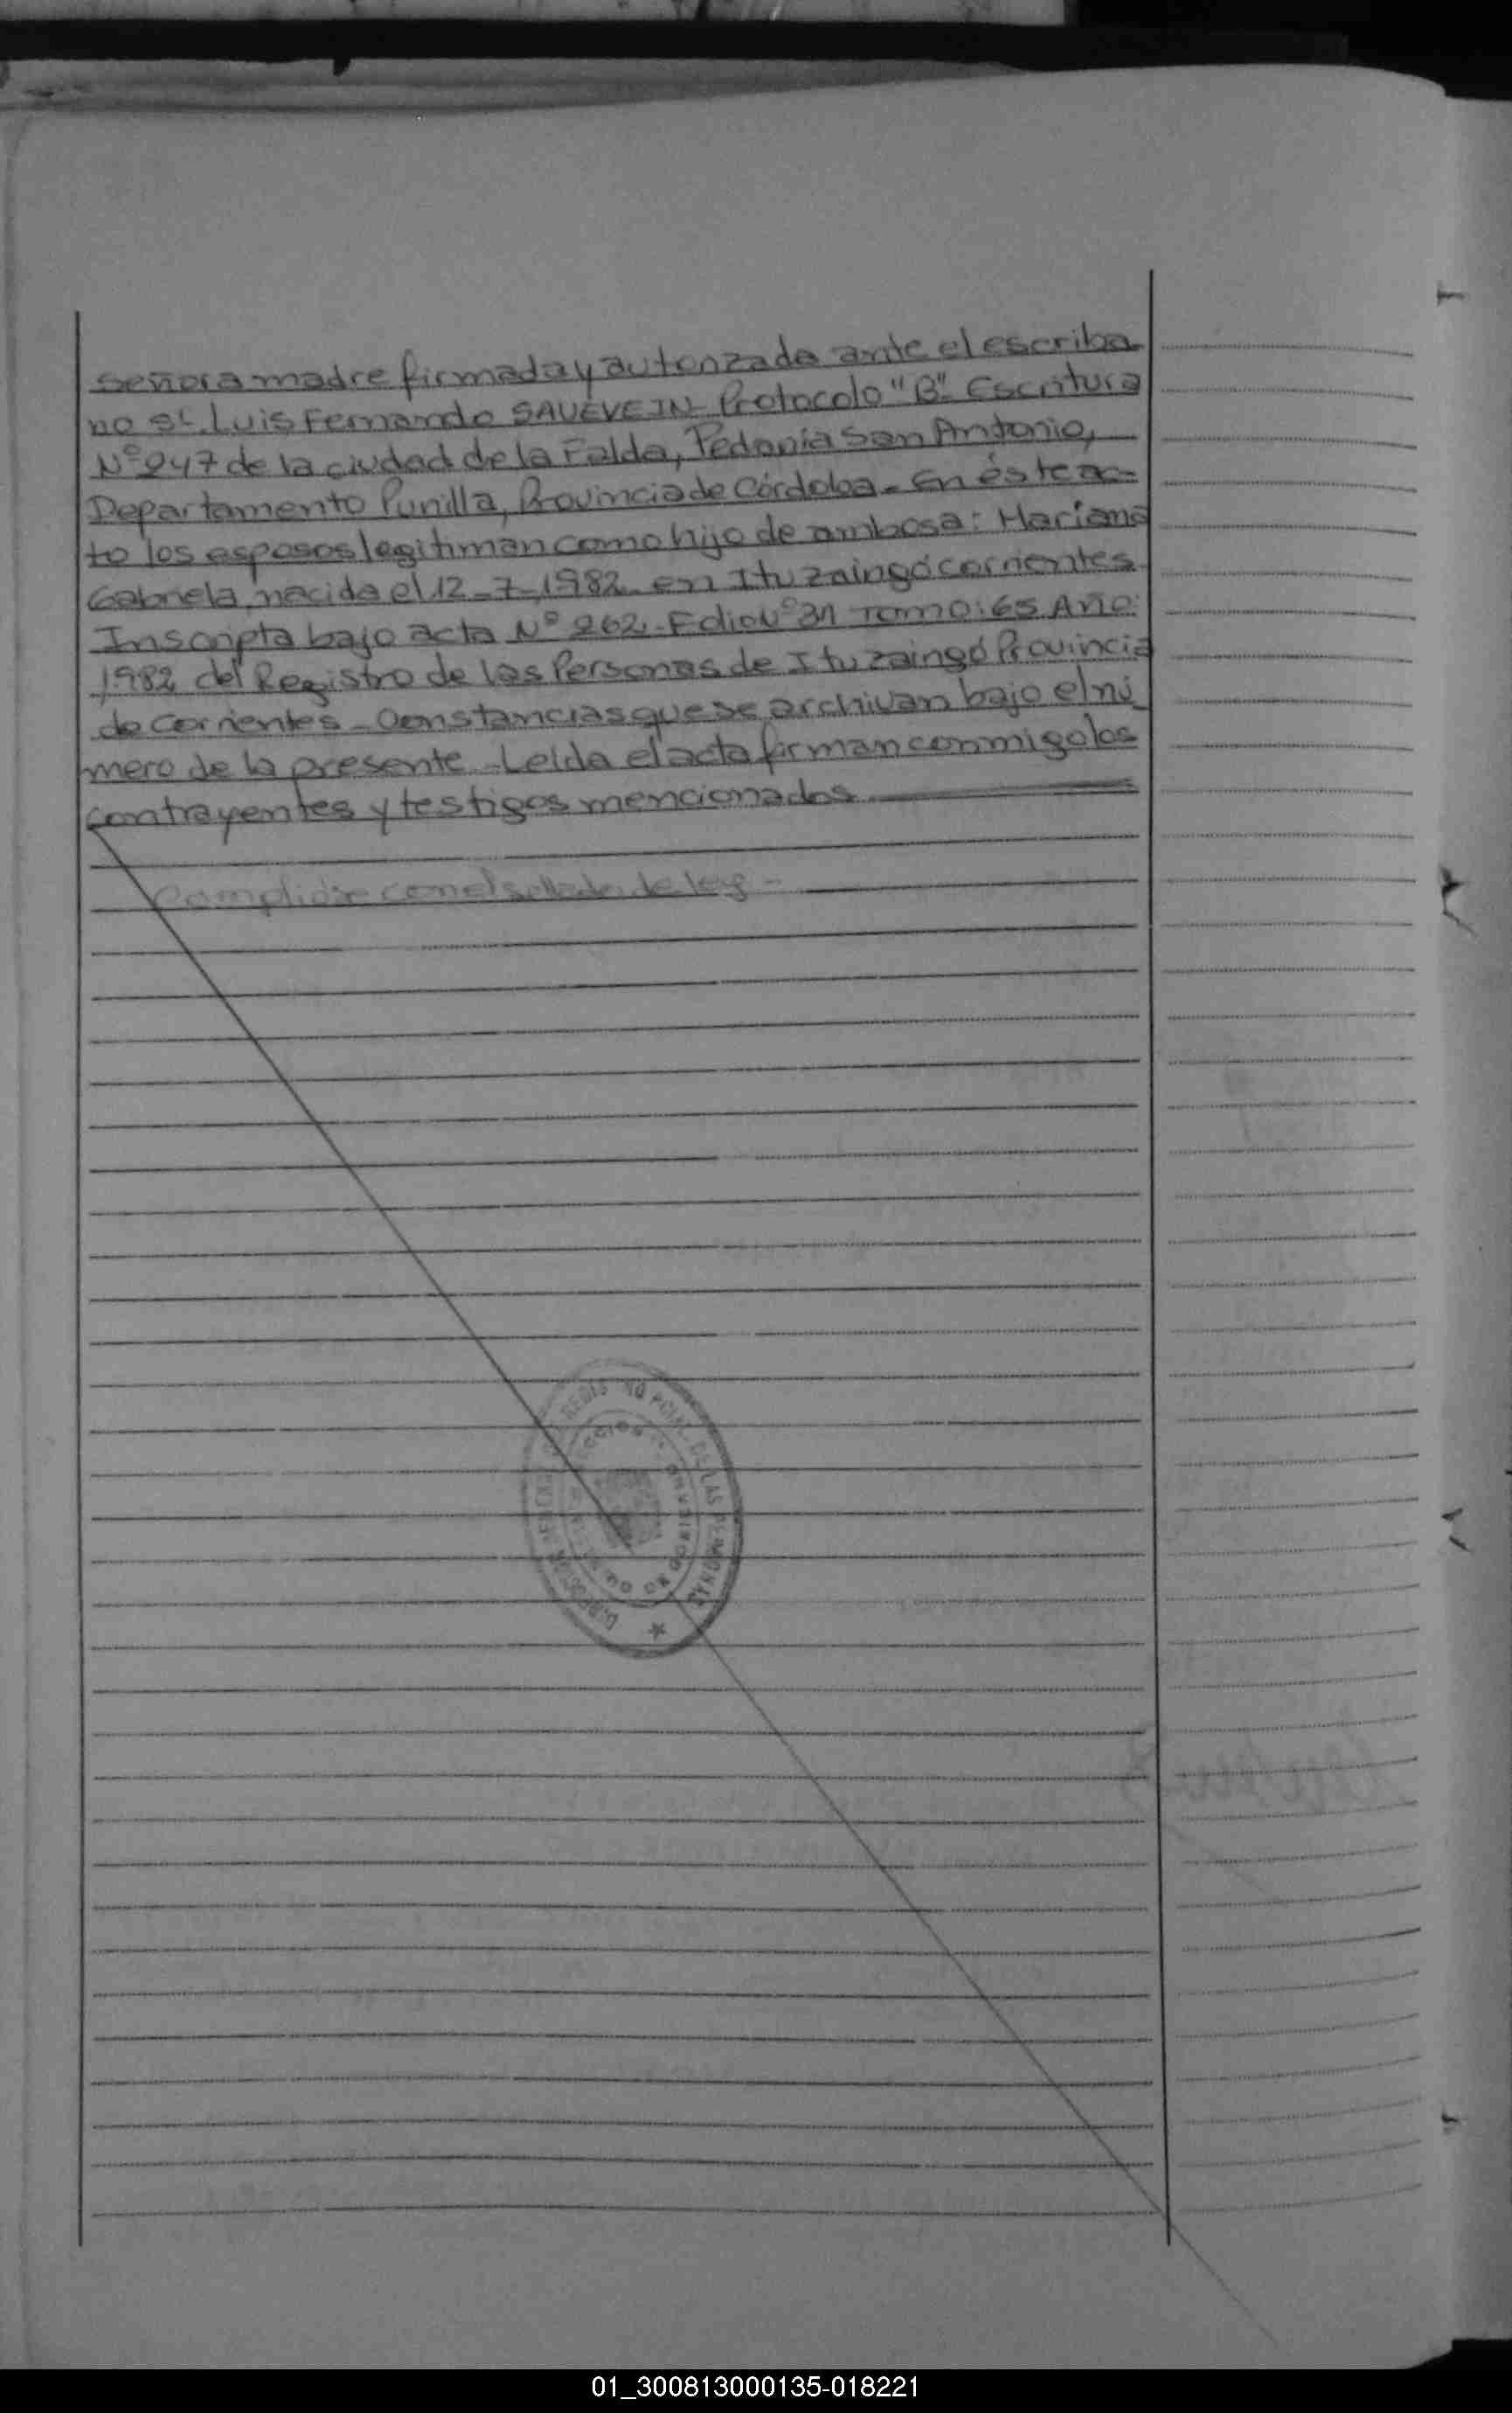 señora madre firmada y autorizada ante el escriba-
no Sr. Luis Fernando SAUEVEIN - Protocolo "B". Escritura
N° 247 de la ciudad de la Falda, Pedanía San Antonio,
Departamento Punilla, Provincia de Córdoba - En éste ac-
to los esposos legitiman como hijo de ambos a: Mariana
Gabriela, nacida el 12-7-1982 en Ituzaingó corrientes
Inscripta bajo acta N° 262 - Folio N° 31 Tomo: 65 Año:
1982 del Registro de las Personas de Ituzaingó Provincia
de Corrientes - Constancias que se archivan bajo el nú
mero de la presente - Leída el acta firman conmigo los
contrayentes y testigos mencionados
Complidse con el sellado de ley -
REGIS DE LAS PERSONAS
01_300813000135-018221